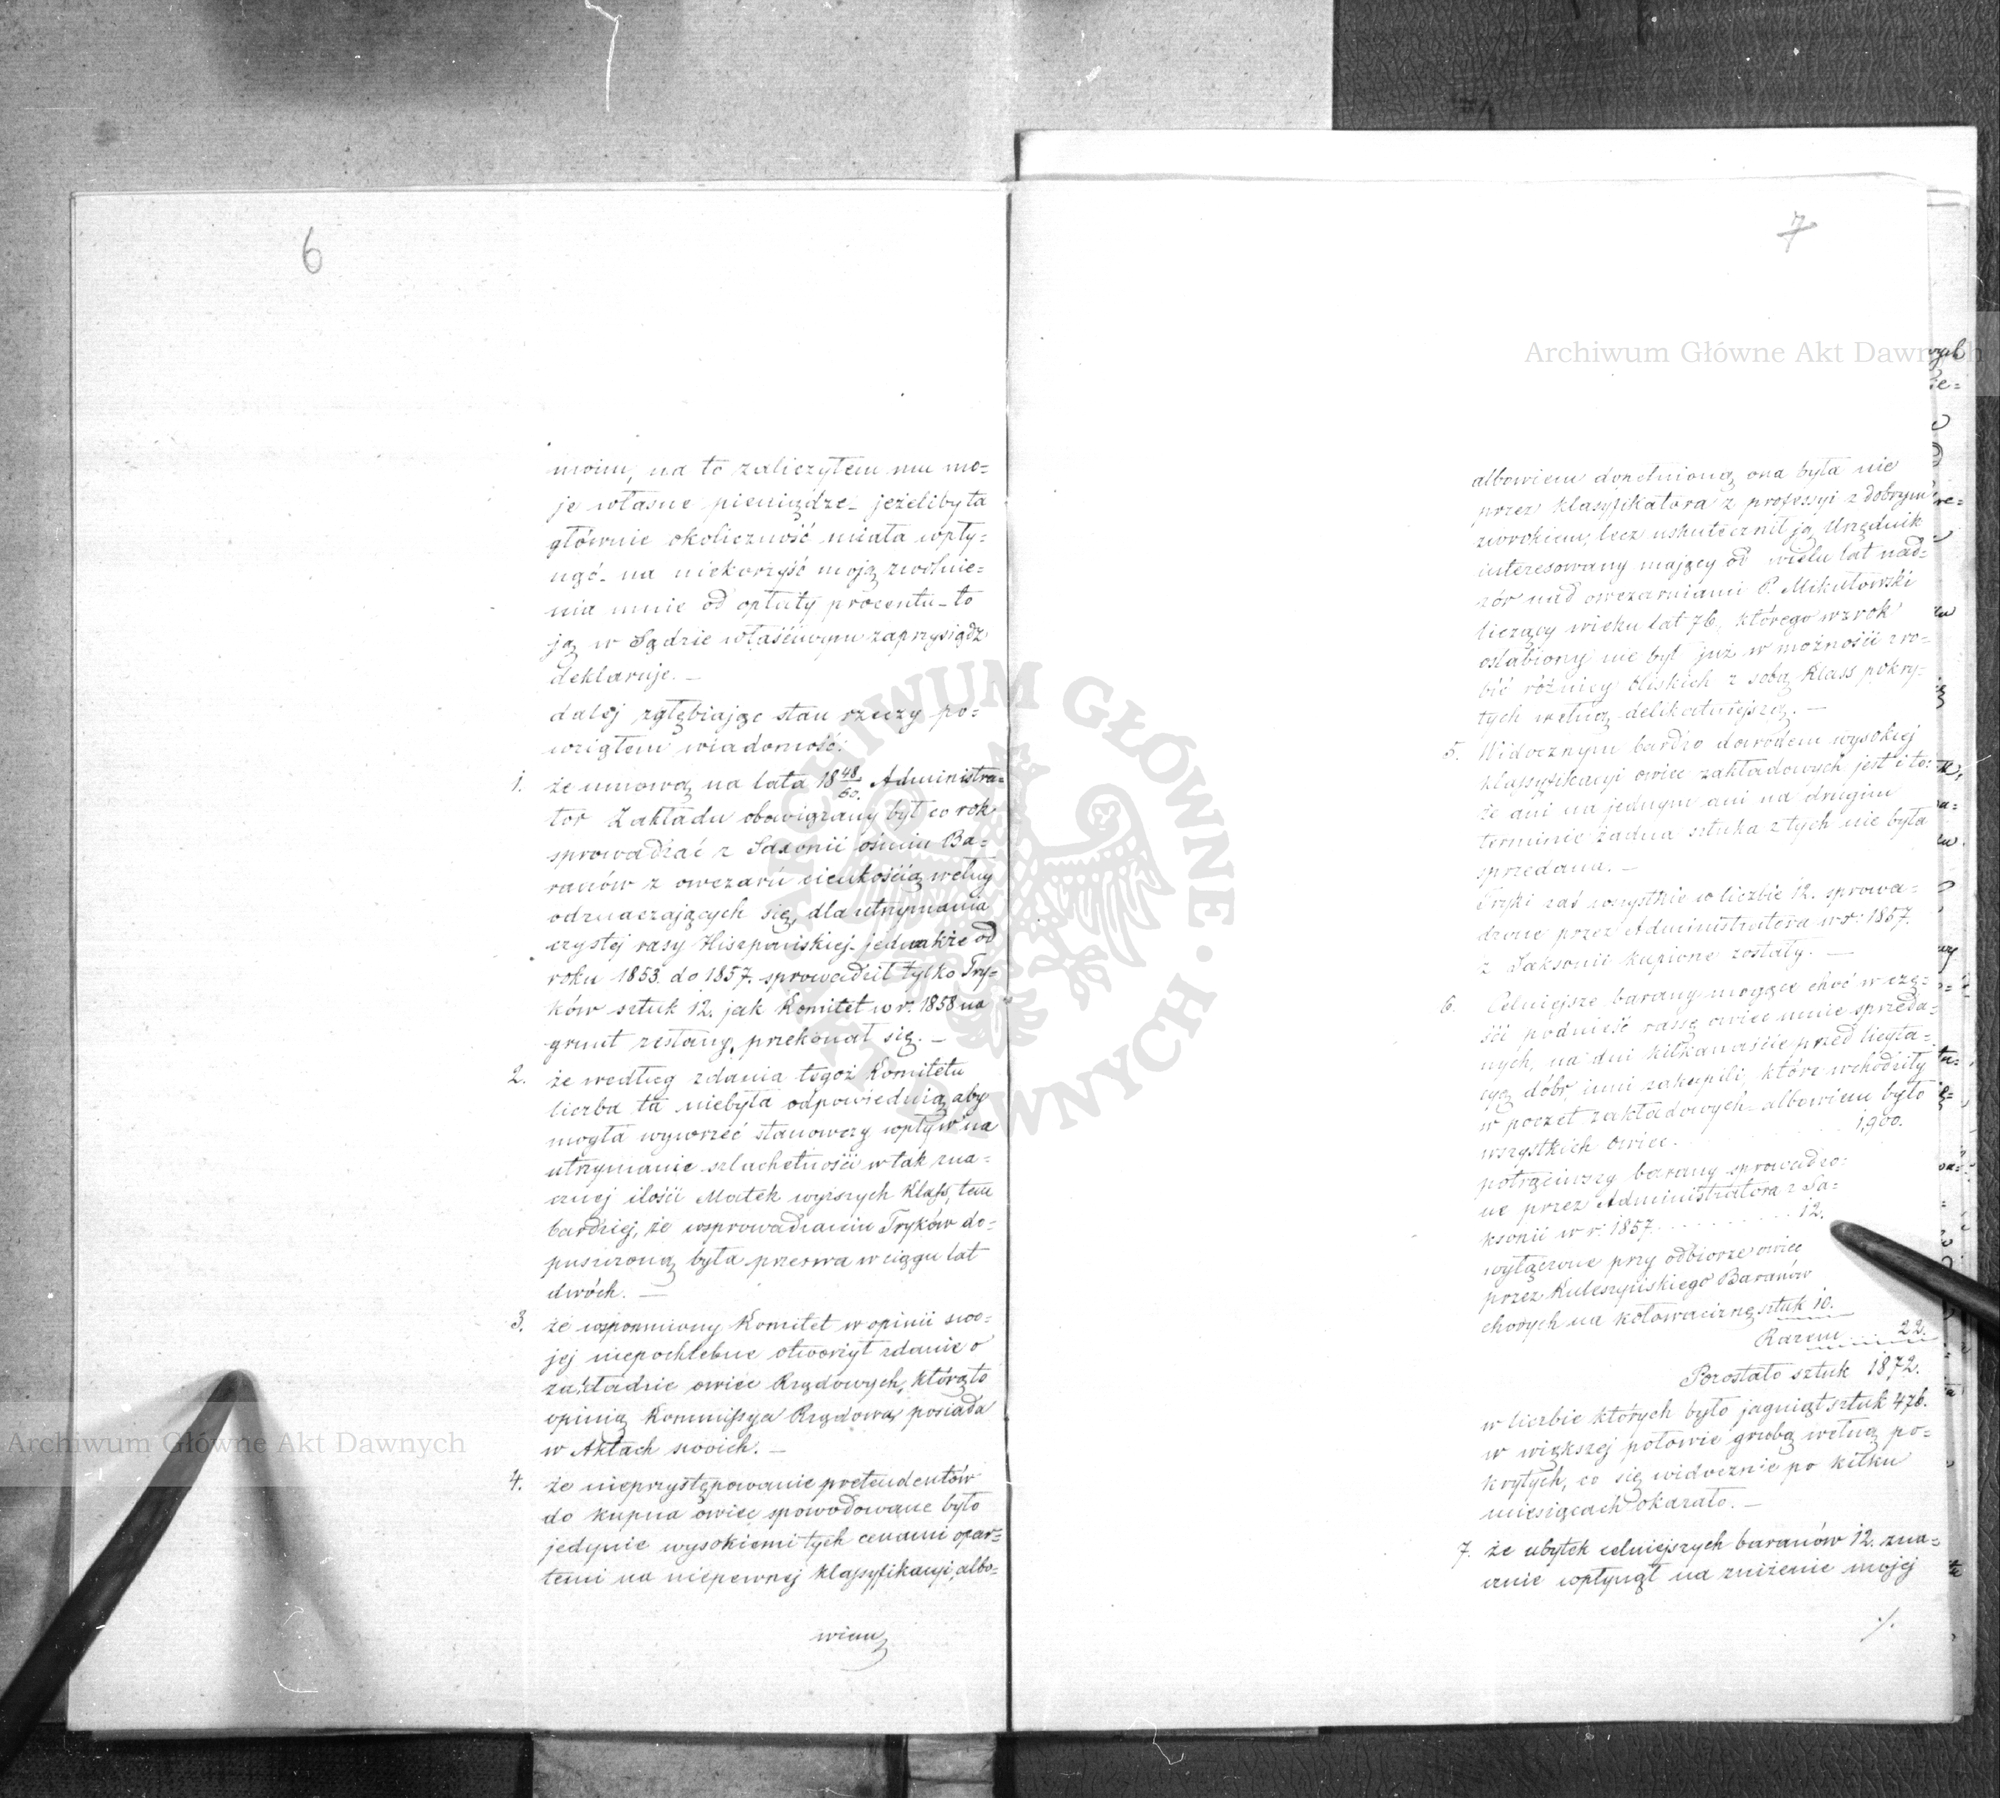 6
moim, na to zaliczyłem mu mo=
je własne pieniądze_ jeżeliby ta
głównie okoliczność miała wpły=
nąć_ na niekorzyść moją zwolnie=
nia mnie od opłaty procentu_ to
ją w Sądzie właściwym zaprzysiądz
deklaruję. _
dalej zgłębiając stan rzeczy po=
wziąłem wiadomość:
1. że umową na lata 18 48/60. Administra=
tor Zakładu obowiązany był co rok
sprowadzać z Saxonii ośmiu Ba=
ranów z owczarń cienkością wełny
odznaczających się, dla utrzymania
czystej rasy Hiszpańskiej_ jednakże od
roku 1853. do 1857. sprowadził tylko Try=
ków sztuk 12. jak Komitet w r. 1858 na
grunt zesłany, przekonał się. _
2. że według zdania tegoż Komitetu
liczba ta niebyła odpowiednią, aby
mogła wywrzeć stanowczy wpływ na
utrzymanie szlachetności w tak zna=
cznej ilości Matek wyższych Klass, tem
bardziej, że w sprowadzaniu Tryków do=
puszczoną była przerwa w ciągu lat
dwóch. _
3. że wspomniony Komitet w opinii swo=
jej niepochlebne otworzył zdanie o
zakładzie owiec Rządowych, którą to
opinią Kommissya Rządowa posiada
w Aktach swoich. _
4. że nieprzystępowanie pretendentów
do kupna owiec spowodowane było
jedynie wysokiemi tych cenami opar=
temi na niepewnej klassyfikacyi, albo=
wiem
7
albowiem dopełnioną ona była nie
przez klasyfikatora z professyi z dobrym
wzrokiem, lecz uskutecznił ją Urzędnik
interesowany mający od wielu lat nad=
zór nad owczarniami P. Mikułowski
liczący wieku lat 76, którego wzrok
osłabiony nie był już w możności zro=
bić różnicy bliskich z sobą Klass pokry=
tych wełną delikatniejszą. _
5. Widocznym bardzo dowodem wysokiej
klassyfikacyi owiec zakładowych jest i to:
że ani na jednym ani na drugim
terminie żadna sztuka z tych nie była
sprzedana. _
Tryki zaś wszystkie w liczbie 12. sprowa=
dzone przez Administratora w r. 1857.
z Saksonii kupione zostały. _
6. Celniejsze barany mogące choć w czę=
ści podnieść rassę owiec mnie sprzeda=
nych, na dni kilkanaście przed licyta=
cyą dóbr, inni zakupili, które wchodziły
w poczet zakładowych_ albowiem było
wszystkich owiec. . . . . . . . . 1,900.
potrąciwszy barany sprowadzo=
ne przez Administratora z Sa=
ksonii w r. 1857. . . . . . . . . 12.
wyłączone przy odbiorze owiec
przez Kuleszyńskiego Baranów
chorych na kołowaciznę sztuk 10.
Razem . . . 22.
Pozostało sztuk 1872.
w liczbie których było jagniąt sztuk 476.
w większej połowie grubą wełną po=
krytych, co się widocznie po kilku
miesiącach okazało. _
7. że ubytek celniejszych baranów 12. zna=
cznie wpłynął na zniżenie mojej
./.
Archiwum Główne Akt Dawnych
Archiwum Główne Akt Dawnych
ARCHIWUM GŁÓWNE AKT DAWNYCH